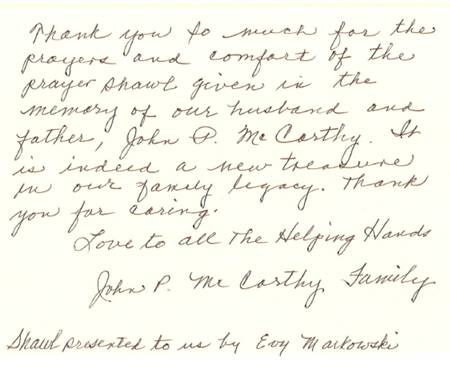 Thank you so much for the
prayers and comfort of the
prayer shawl given in the
memory of our husband and
father, John P. McCarthy. It
is indeed a new treasure
in our family legacy. Thank
you for caring.
Love to all The Helping Hands
John P. McCarthy Family
Shawl presented to us by Evy Markowski